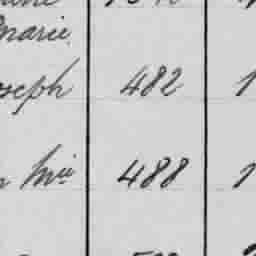 Marie
oseph 482 1
Mie 488 1